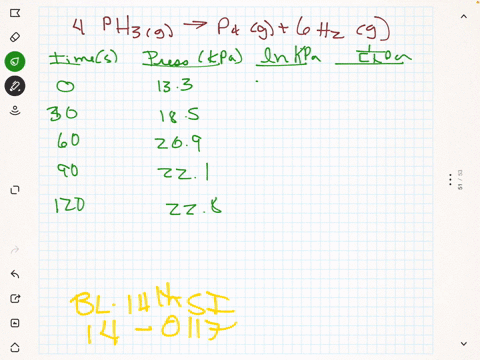 4 PH3(g) → P4(g) + 6H2(g)
Time(s) Press(KPa) ln KPa
0 13.3
30 18.5
60 20.9
90 22.1
120 22.8
BL. 14th SI
14-0117
51 / 53